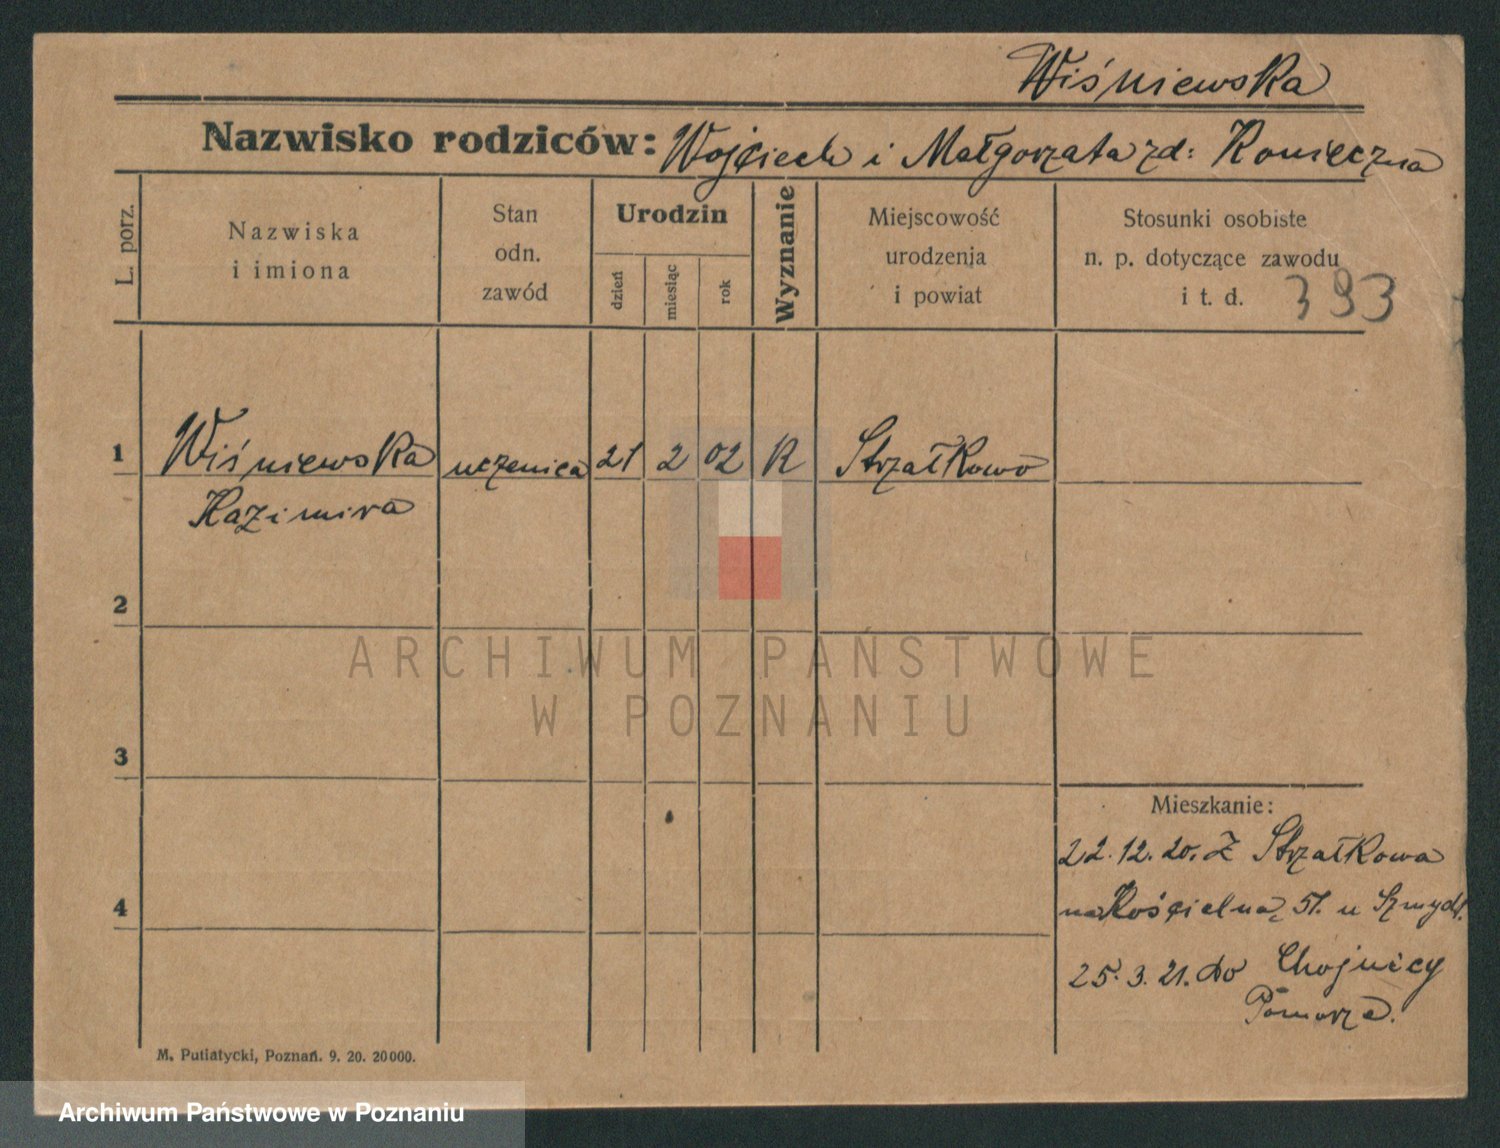 Wiśniewska
Nazwisko rodziców: Wojciech i Małgorzata zd: Konieczna
L. porz.
Nazwiska
i imiona
Stan
odn.
zawód
Urodzin
dzień
miesiąc
rok
Wyznanie
Miejscowość
urodzenia
i powiat
Stosunki osobiste
n. p. dotyczące zawodu
i t. d. 393
1 Wiśniewska uczenica 21 2 02 R Strzałkowo
Kazimira
2
ARCHIWUM PAŃSTWOWE
W POZNANIU
3
Mieszkanie:
22.12.20. Z Strzałkowa
na Kościelną 51. u Szmydt.
4
25.3.21. do Chojnicy
Pomorze.
M. Putiatycki, Poznań. 9. 20. 20000.
Archiwum Państwowe w Poznaniu